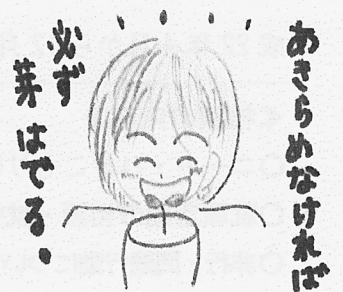 あきらめなければ
必ず
芽はでる。